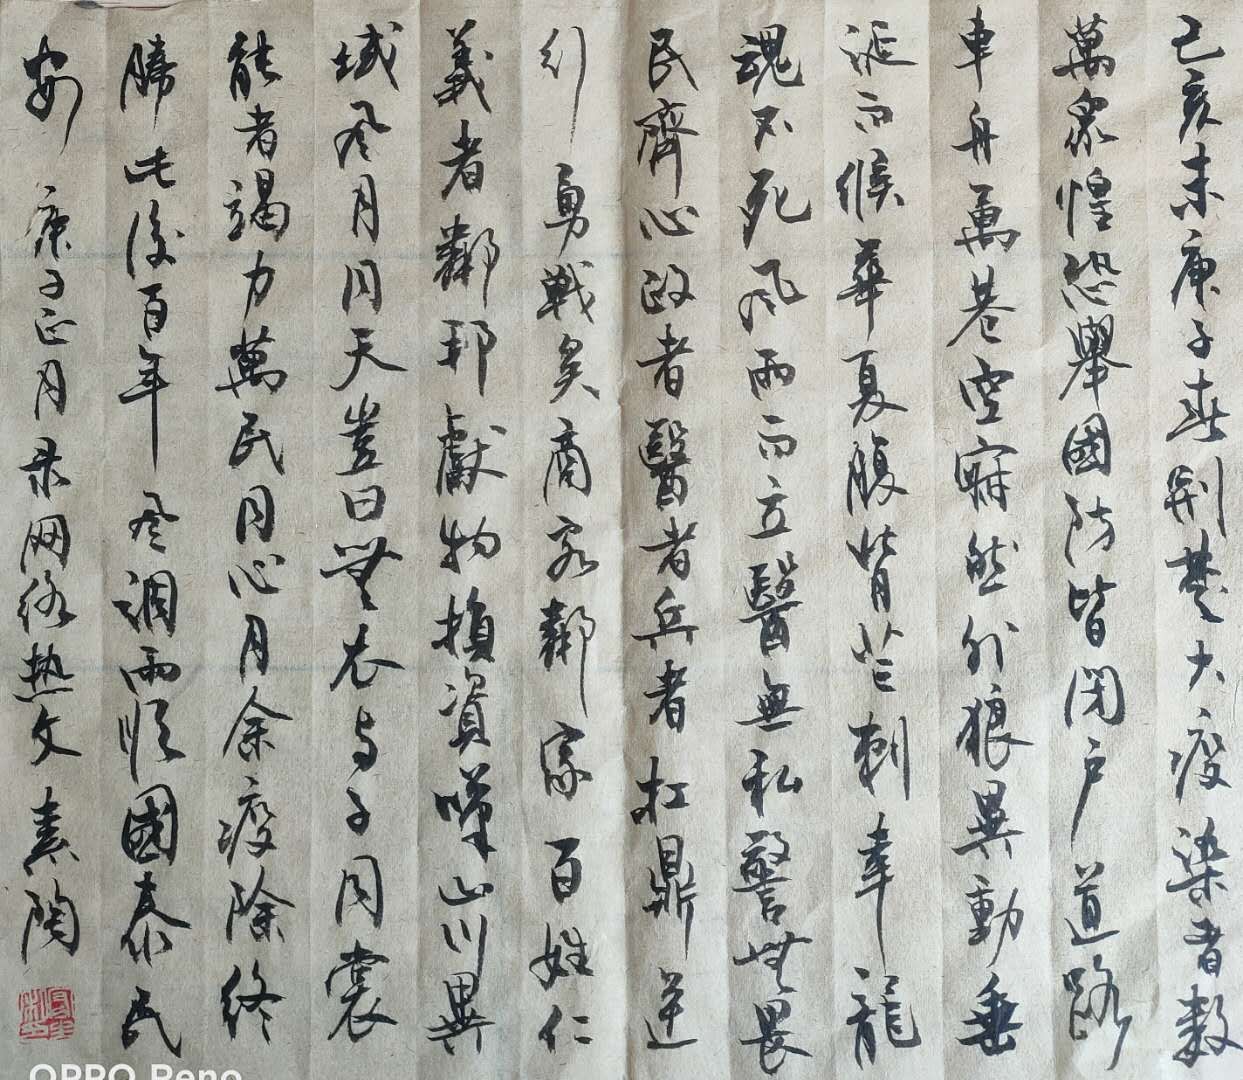 己亥末庚子春荆楚大疫染者数
萬眾惶恐舉國防皆闭户道路
車舟萬巷空寂然外狼異動垂
涎而候華夏腹背芒刺幸龍
魂不死風雨而立醫無私警無畏
民齊心政者醫者兵者扛鼎逆
行勇戰矣商客鄰家百姓仁
義者鄰邦獻物捐資嘆山川異
域风月同天豈曰無衣与子同裳
能者竭力萬民同心月余疫除终
勝此後百年风調雨順國泰民
安 庚子正月录网络热文 素陶
OPPO Reno